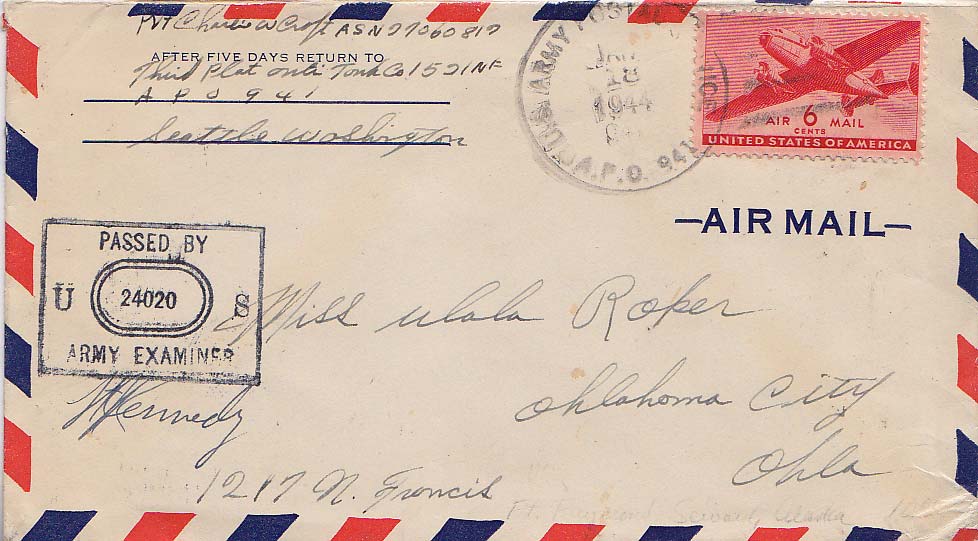 Pvt Charlie W Croft ASN 37060817
AFTER FIVE DAYS RETURN TO
Third Plat Tank Co 1521 NF
A P O 941
Seattle Washington
ARMY POSTAL
JAN
18
1944
A.P.O. 941
AIR 6 MAIL
CENTS
UNITED STATES OF AMERICA
AIR MAIL
PASSED BY
U 24020 S
ARMY EXAMINER
Miss ulala Roper
Kennedy
Oklahoma City
Okla
1217 N. Francis
Ft. Raymond Seward, Alaska